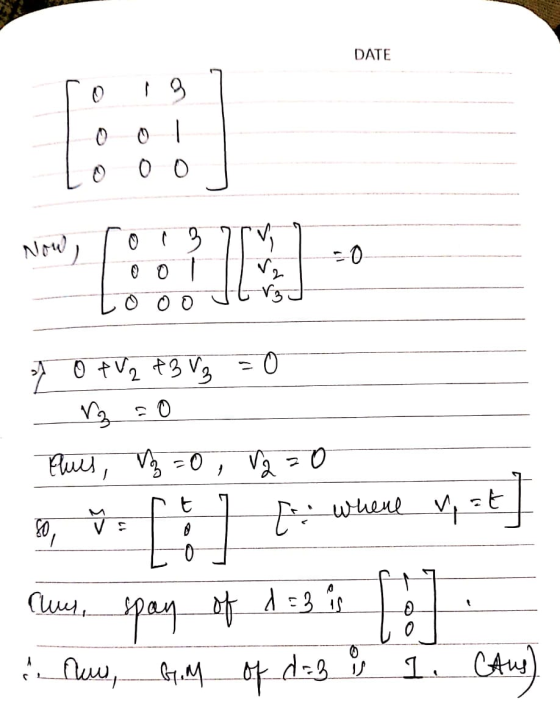 DATE
[ 0 1 3
0 0 1
0 0 0 ]
Now, [ 0 1 3
0 0 1
0 0 0 ] [ v₁
v₂
v₃ ] = 0
⇒ 0 + v₂ + 3v₃ = 0
v₃ = 0
Thus, v₃ = 0, v₂ = 0
so, ṽ = [ t
0
0 ] [∵ where v₁ = t]
Thus, span of λ = 3 is [ 1
0
0 ].
∴ Thus, G.M of λ = 3 is 1. (Ans)